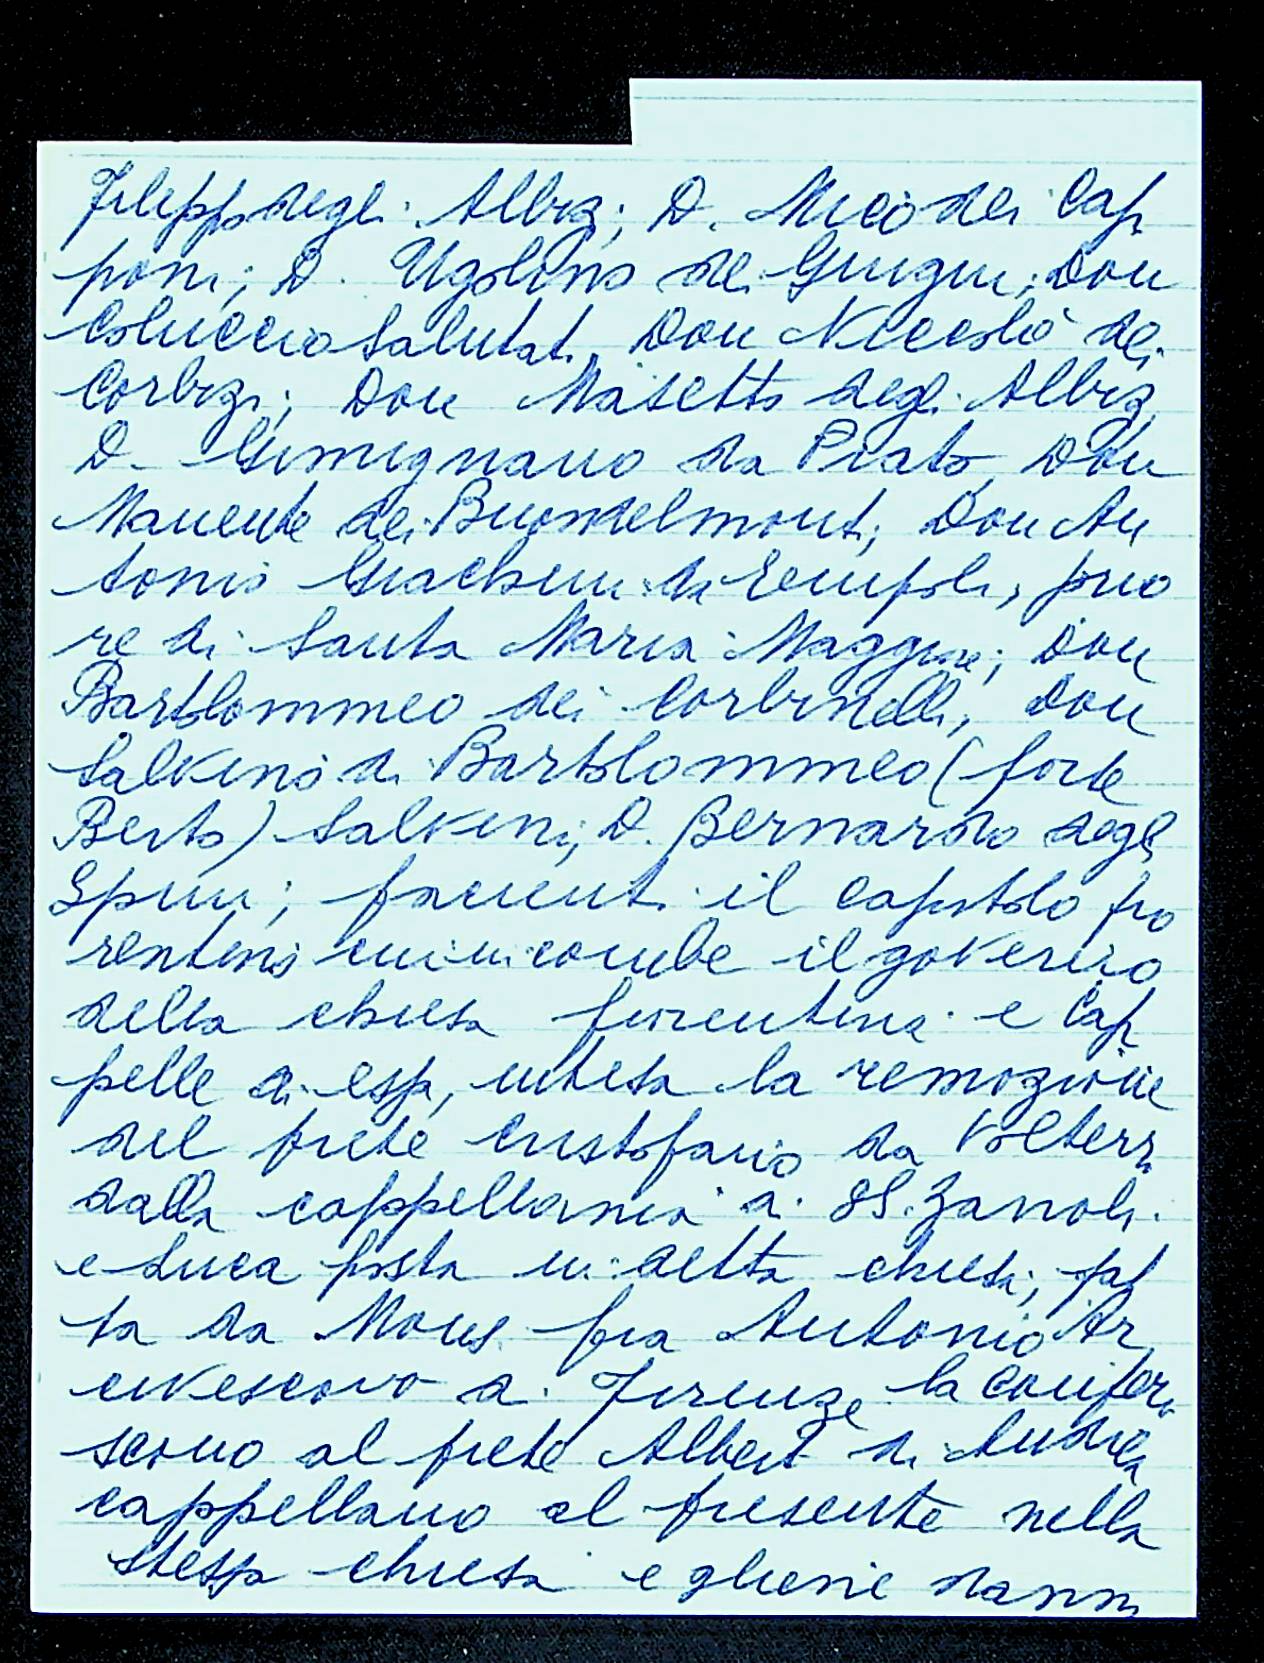 Filippo degli Albizi; D. Nicò dei Cap
poni; D. Ugolino dei Giugni; Don
Coluccio Salutati, Don Niccolò dei
Corbizi; Don Masetto degli Albizi,
D. Gimignano da Prato, Don
Manente dei Buondelmonti; Don An
tonio da Empoli, prio
re di Santa Maria Maggiore; Don
Bartolommeo dei Corbinelli, Don
Salvino di Bartolommeo (forte
Berto) Salvini, D. Bernardo degli
Spini; facienti il capitolo fio
rentino cui incombe il governo
della chiesa fiorentina e Cap
pelle di essa, intesa la remozione
del prete Cristofano da Volterra
dalla cappellania di SS. Zanobi
e Luca posta in detta chiesa; fat
ta da Mons. fra Antonio Ar
civescovo di Firenze la conferi
scono al prete Alberto di Andrea
cappellano al presente nella
stessa chiesa e gliene danno